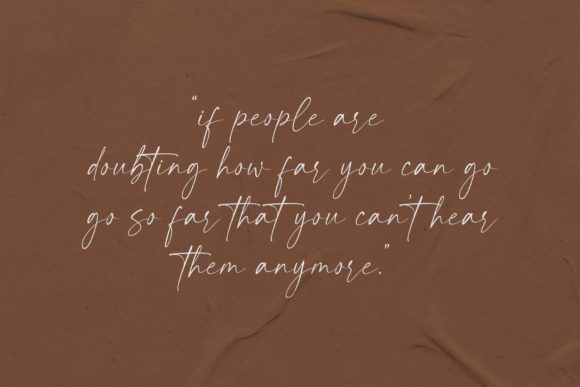 “if people are
doubting how far you can go
go so far that you can't hear
them anymore.”